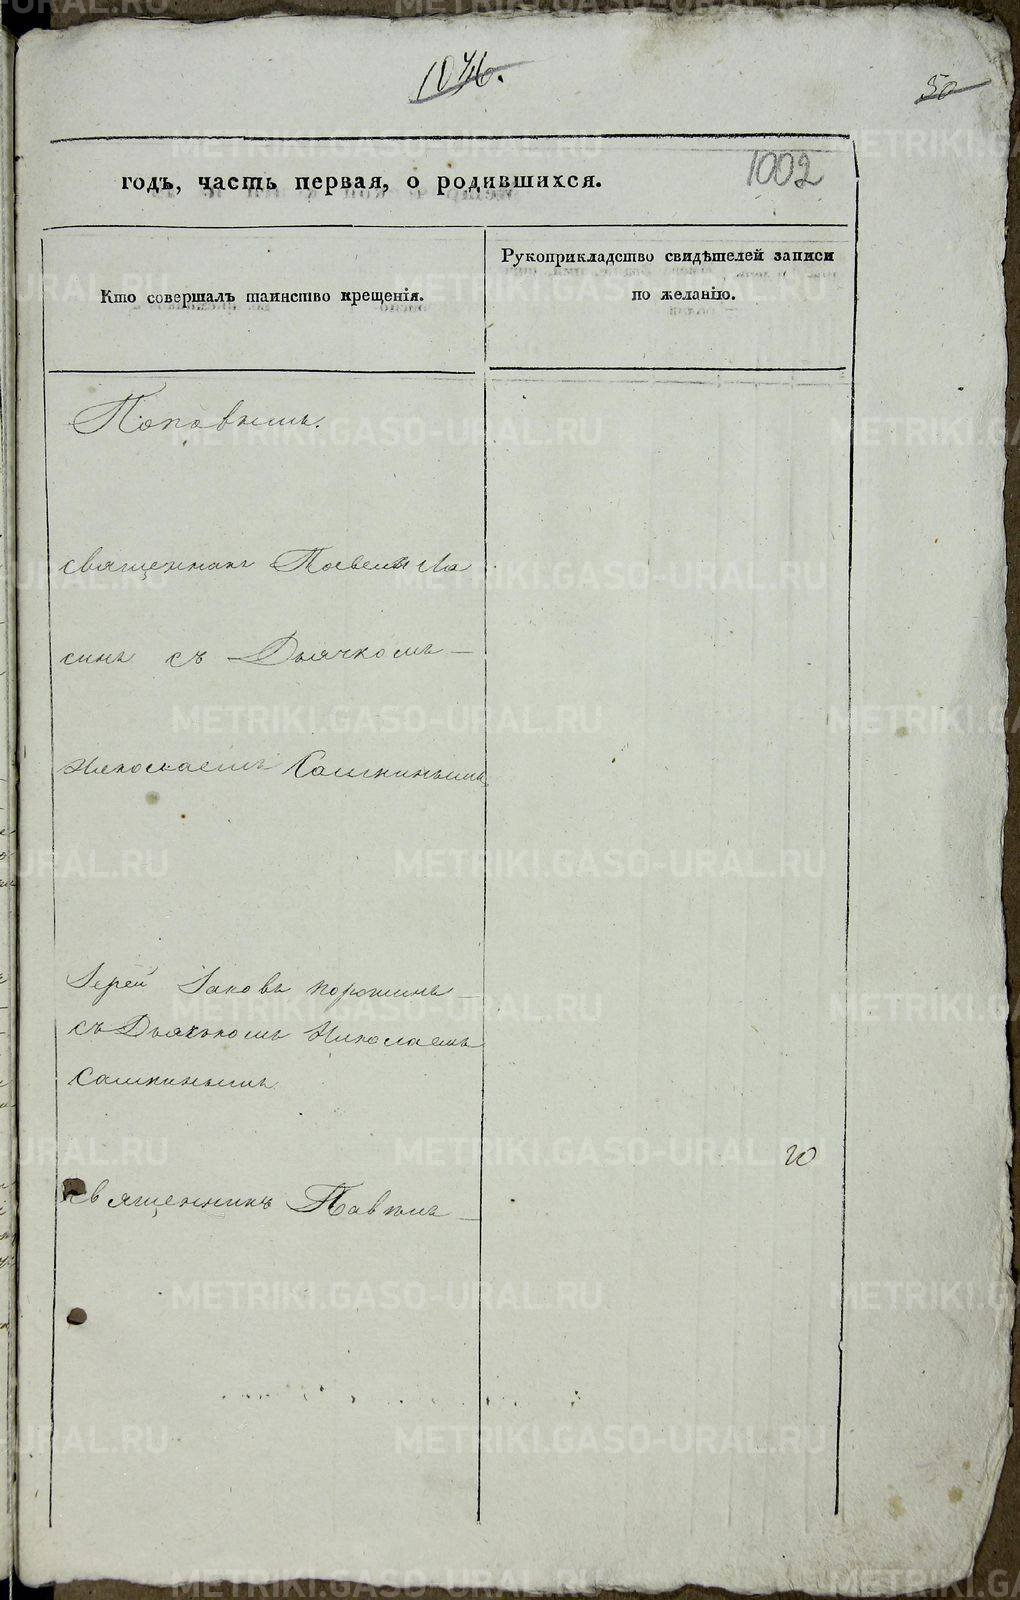 1046.
50
1002
годъ, часть первая, о родившихся.
Кто совершалъ таинство крещенія.
Рукоприкладство свидѣтелей записи
по желанію.
Поповымъ.
священникъ Павелъ Ла
синъ съ Дьячкомъ —
Николаемъ Сашкинымъ
Іерей Іаковъ Порошинъ —
съ Дьячкомъ Николаемъ
Сашкинымъ
20
священникъ Павелъ —
METRIKI.GASO-URAL.RU